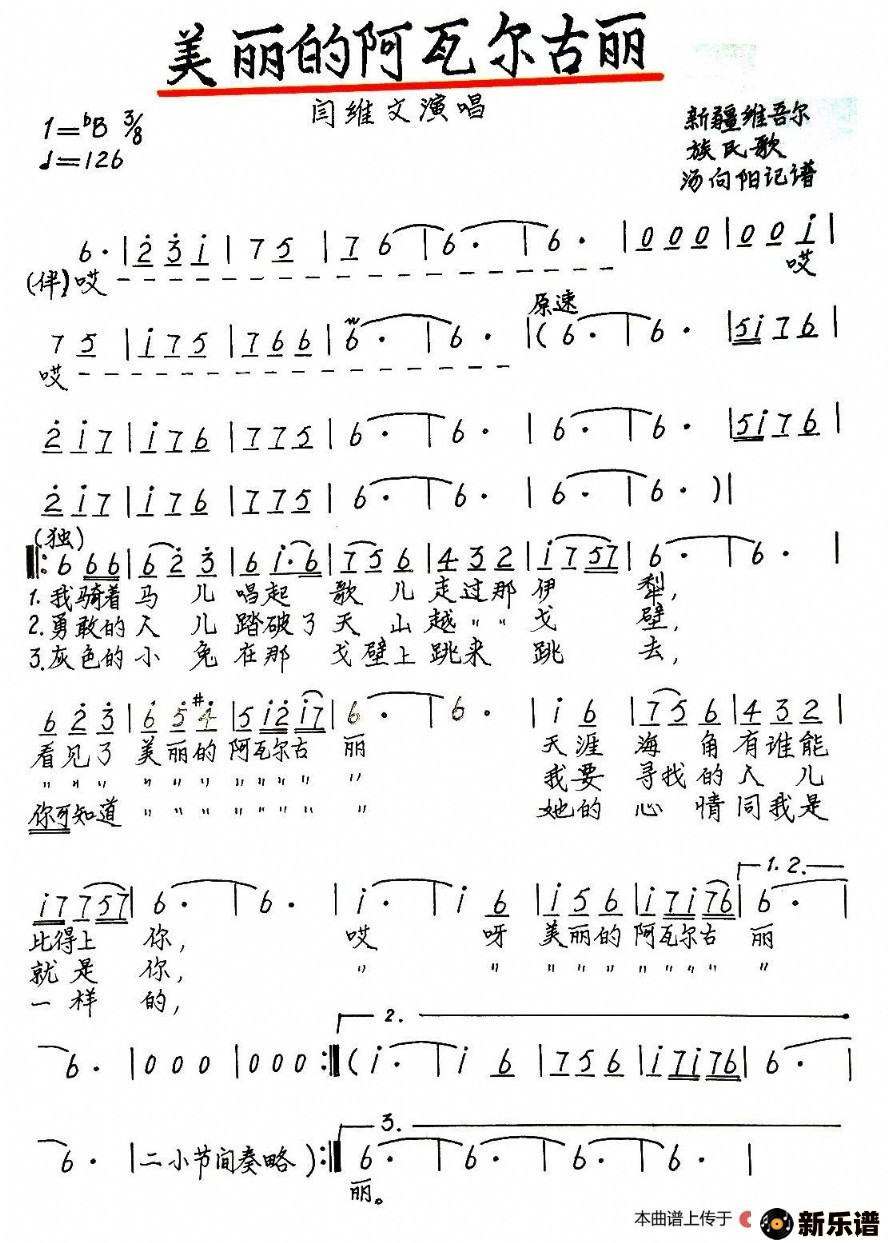 美丽的阿瓦尔古丽
闫维文演唱
1=♭B 3/8
♩=126
新疆维吾尔
族民歌
汤向阳记谱
6·|2̇ 3̇ i|7 5|7 6|6·|6·|0 0 0|0 0 i|
(伴)哎 哎
原速
7 5|i 7 5|7 6 6|6·|6·|(6·|6·|5 i 7 6|
哎
2̇ i 7|i 7 6|7 7 5|6·|6·|6·|6·|5 i 7 6|
2̇ i 7|i 7 6|7 7 5|6·|6·|6·|6·)|
(独)
‖:6 6 6|6 2̇ 3̇|6 i·6|7 5 6|4 3 2|i 7 5 7|6·|6·|
1.我骑着马儿唱起歌儿走过那伊犁,
2.勇敢的人儿踏破了天山越〃〃戈壁,
3.灰色的小兔在那戈壁上跳来跳去,
6 2̇ 3̇|6 5 #4|5 i 2̇ i 7|6·|6·|i 6|7 5 6|4 3 2|
看见了美丽的阿瓦尔古丽 天涯海角有谁能
〃〃〃〃〃〃〃〃〃〃〃 我要寻找的人儿
你可知道〃〃〃〃〃〃〃〃 她的心情同我是
1.2.
i 7 7 5 7|6·|6·|i·|i 6|i 5 6|i 7 i 7 6|6·|
比得上你, 哎 呀 美丽的阿瓦尔古丽
就是你, 〃 〃 〃〃〃〃〃〃〃〃
一样的,
2.
6·|0 0 0|0 0 0:‖(i·|i 6|7 5 6|i 7 i 7 6|6·|
3.
6·|二小节间奏略):‖6·|6·|6·|6·|
丽。
本曲谱上传于 新乐谱